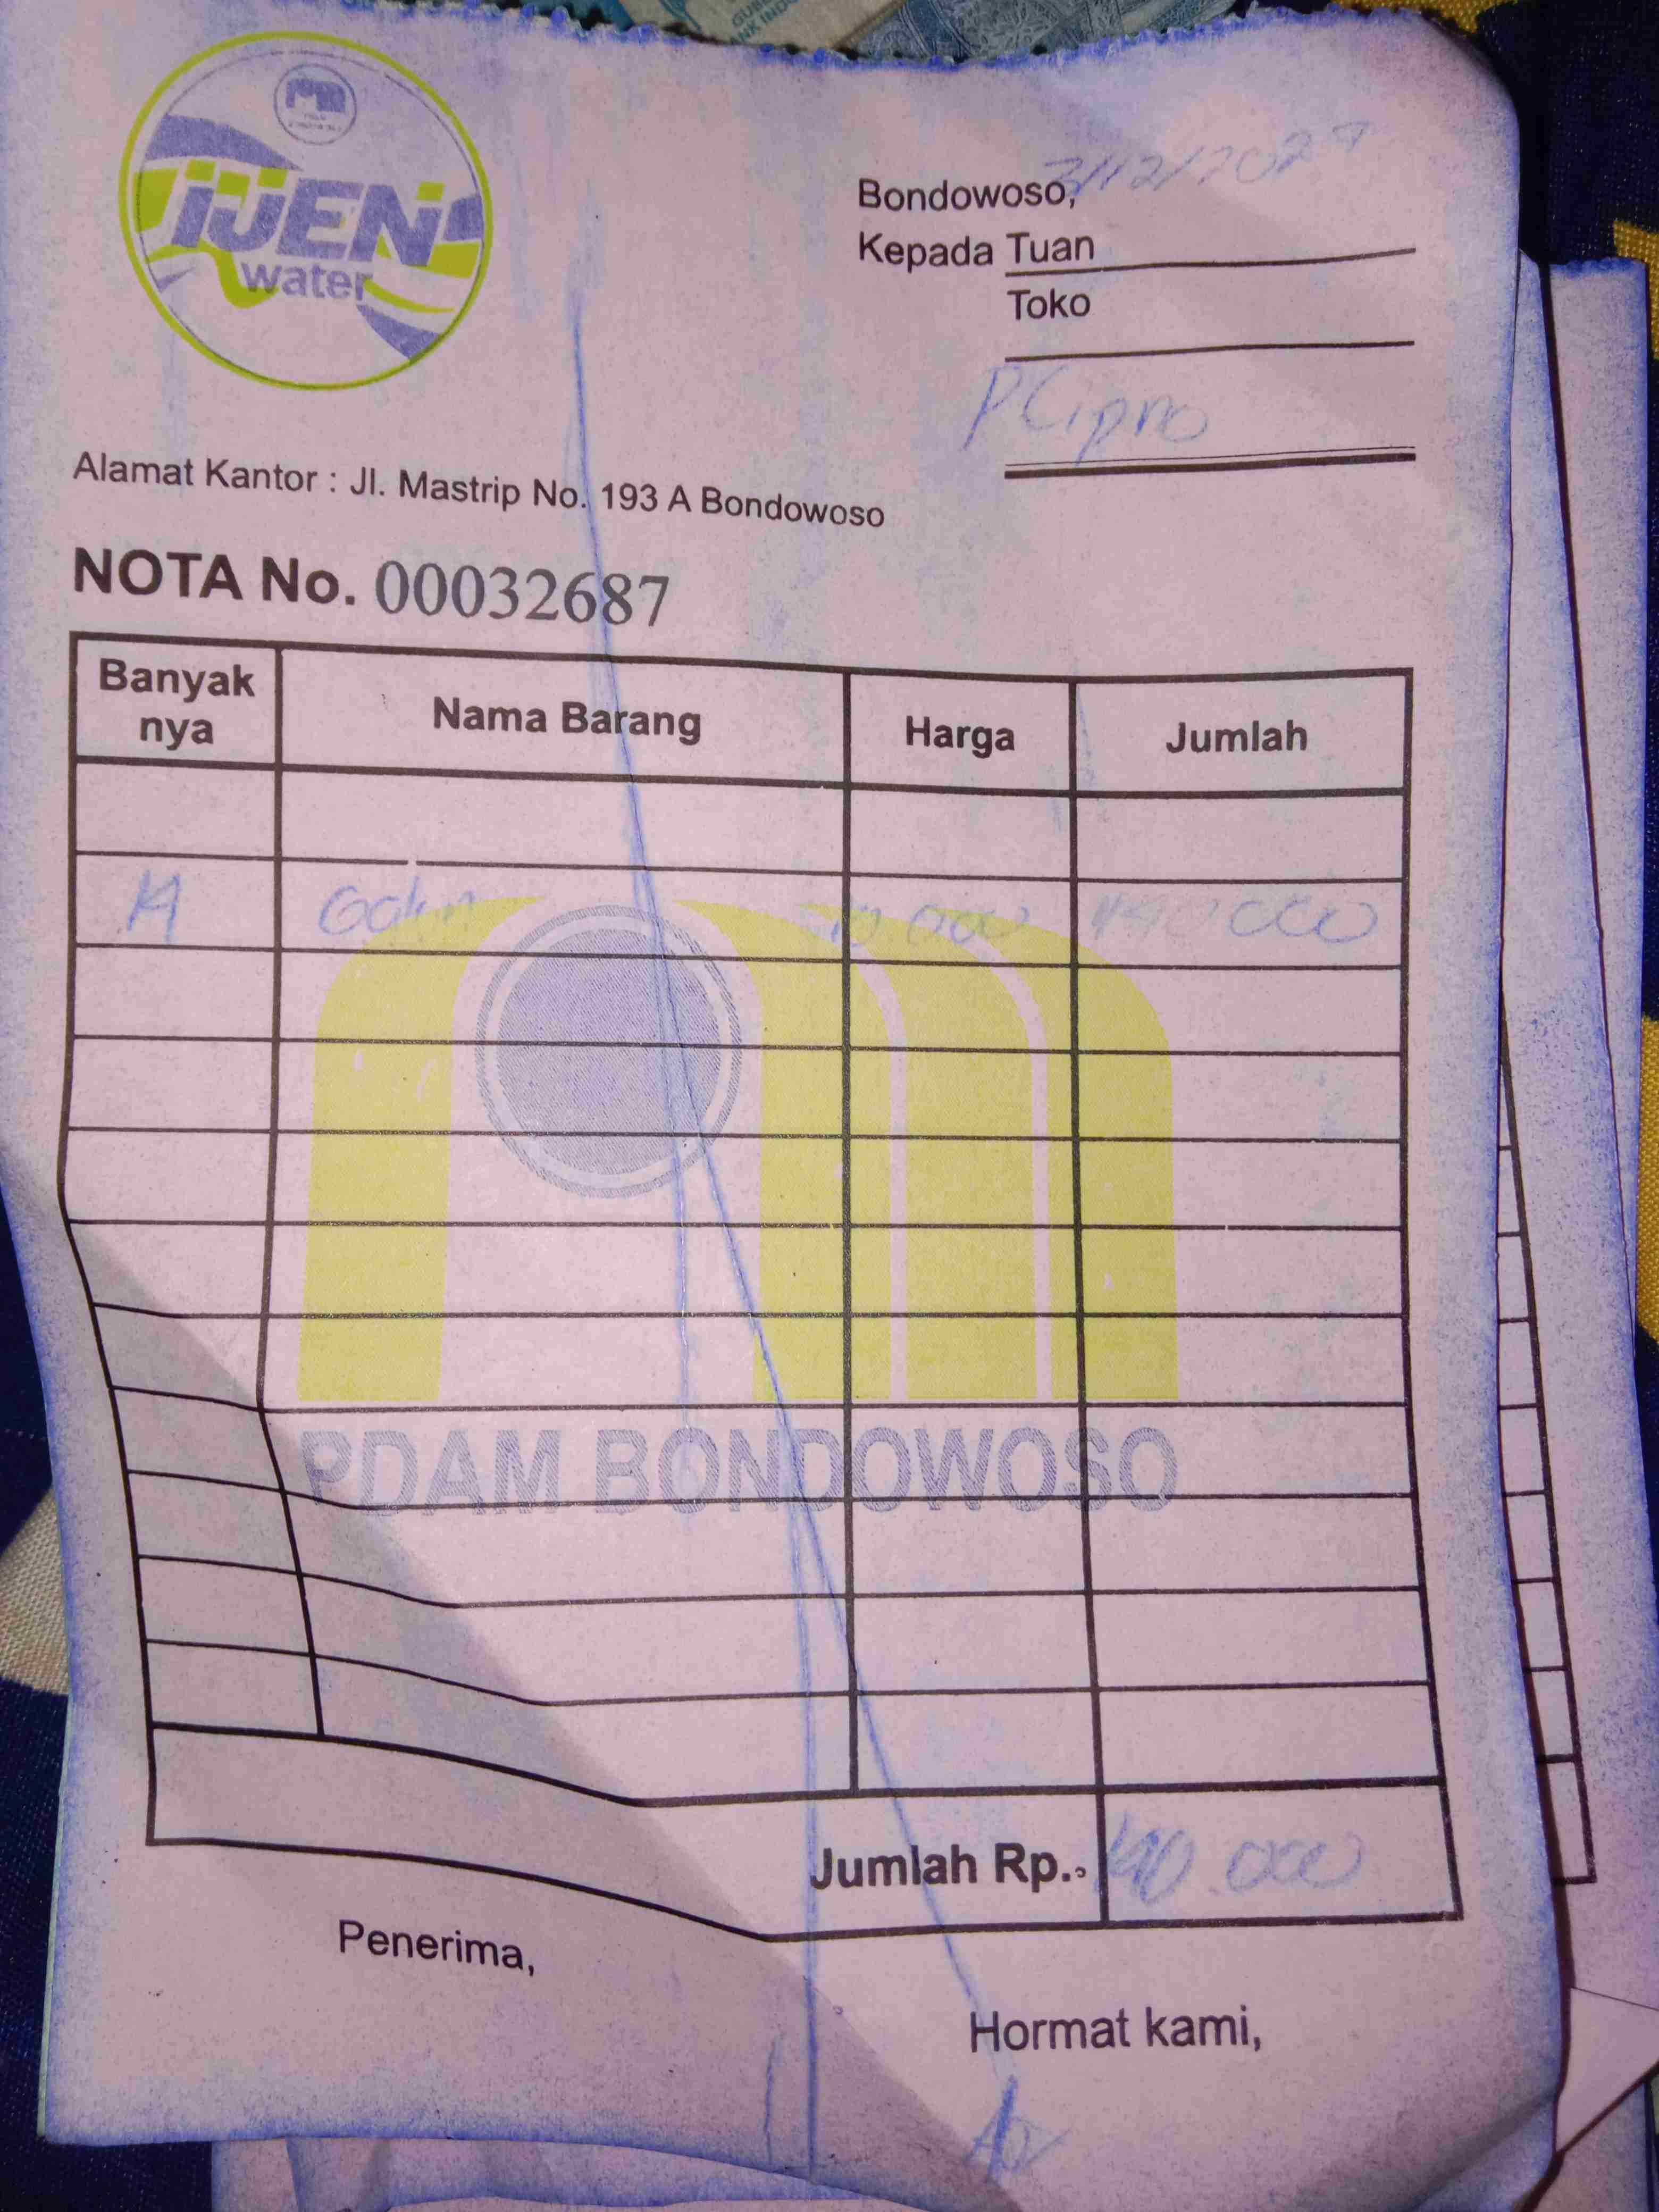 IJEN
water
Bondowoso,
Kepada Tuan
Toko
P Cipno
Alamat Kantor : Jl. Mastrip No. 193 A Bondowoso
NOTA No. 00032687
Banyak nya Nama Barang Harga Jumlah
14 Galon 10.000 140000
PDAM BONDOWOSO
Jumlah Rp.. 140.000
Penerima,
Hormat kami,